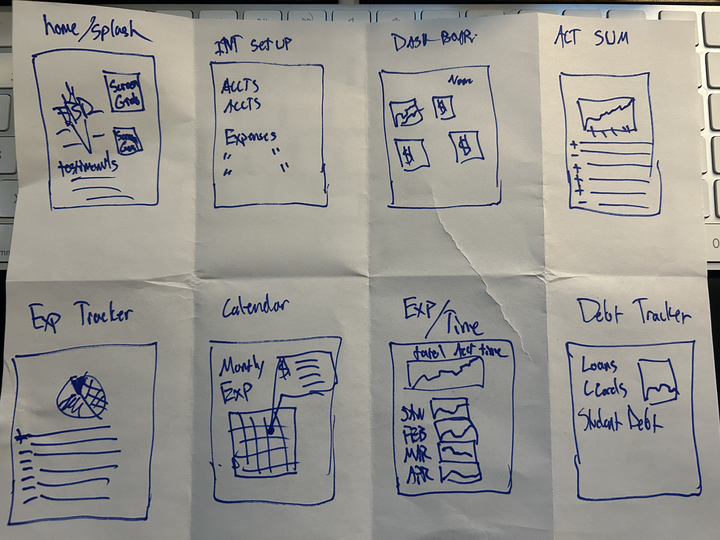 home/splash
Screen
Grab
Screen
Grab
testimonials
INT SETUP
ACCTS
ACCTS
Expenses
" "
" "
DASH BOAR.
Name
$
$
$
ACT SUM
+
-
+
+
+
-
Exp Tracker
+
Calendar
Monthly
Exp
$
Exp/Time
total Acct time
JAN
FEB
MAR
APR
Debt Tracker
Loans
CCards
Student Debt